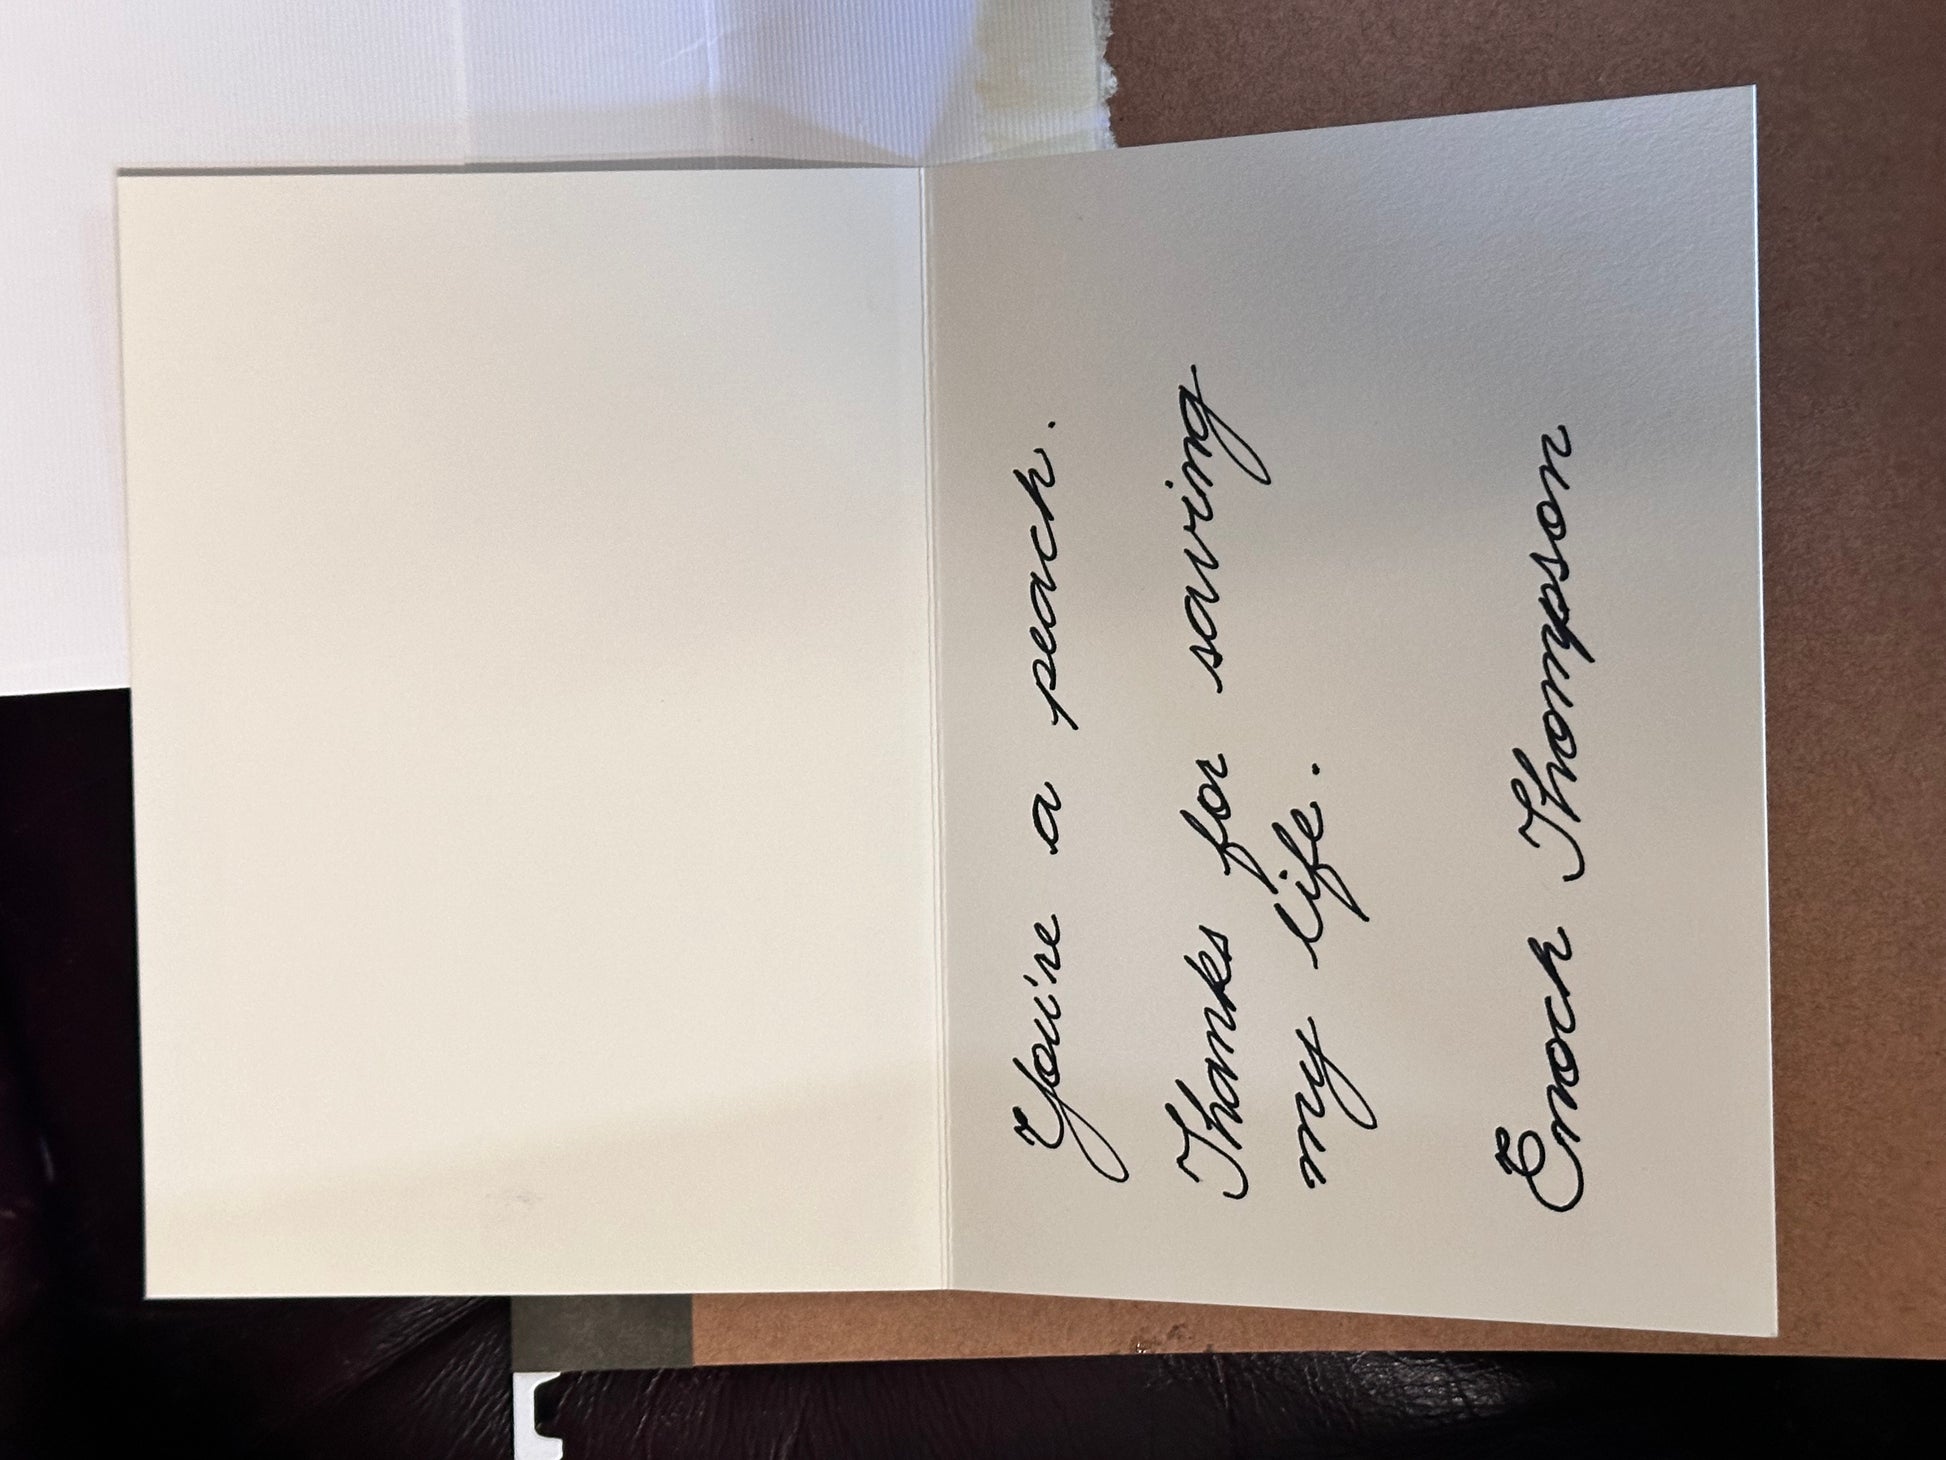 You're a peach.
Thanks for saving
my life.
Enoch Thompson